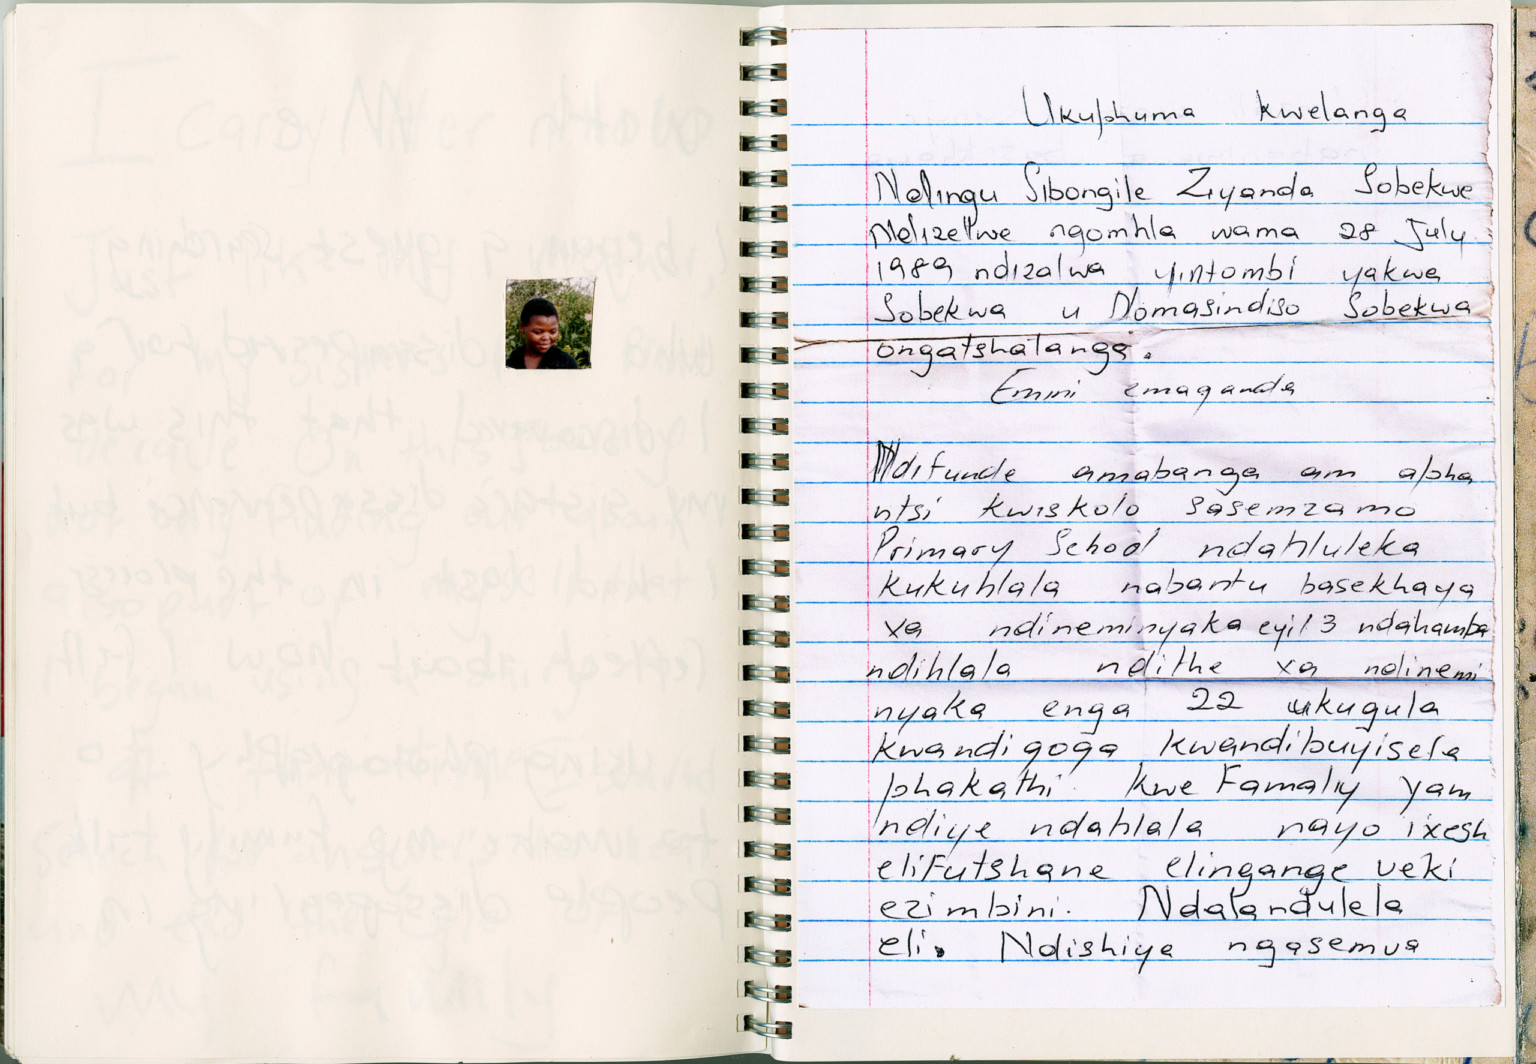 Ukuphuma kwelanga
Ndingu Sibongile Ziyanda Sobekwe
Ndizelwe ngomhla wama 28 July
1989 ndizalwa yintombi yakwa
Sobekwa u Nomasindiso Sobekwa
ongatshatanga.
Emini emaqanda
Ndifunde amabanga am apha
ntsi kwiskolo sasemzamo
Primary School ndahluleka
kukuhlala nabantu basekhaya
xa ndineminyaka eyi13 ndahamba
ndihlala ndithe xa ndinemi
nyaka enga 22 ukugula
kwandigoga kwandibuyisela
phakathi kwe Famaliy yam
ndiye ndahlala nayo ixesh
elifutshane elingange veki
ezimbini. Ndalandulela
eli. Ndishiya ngasemva